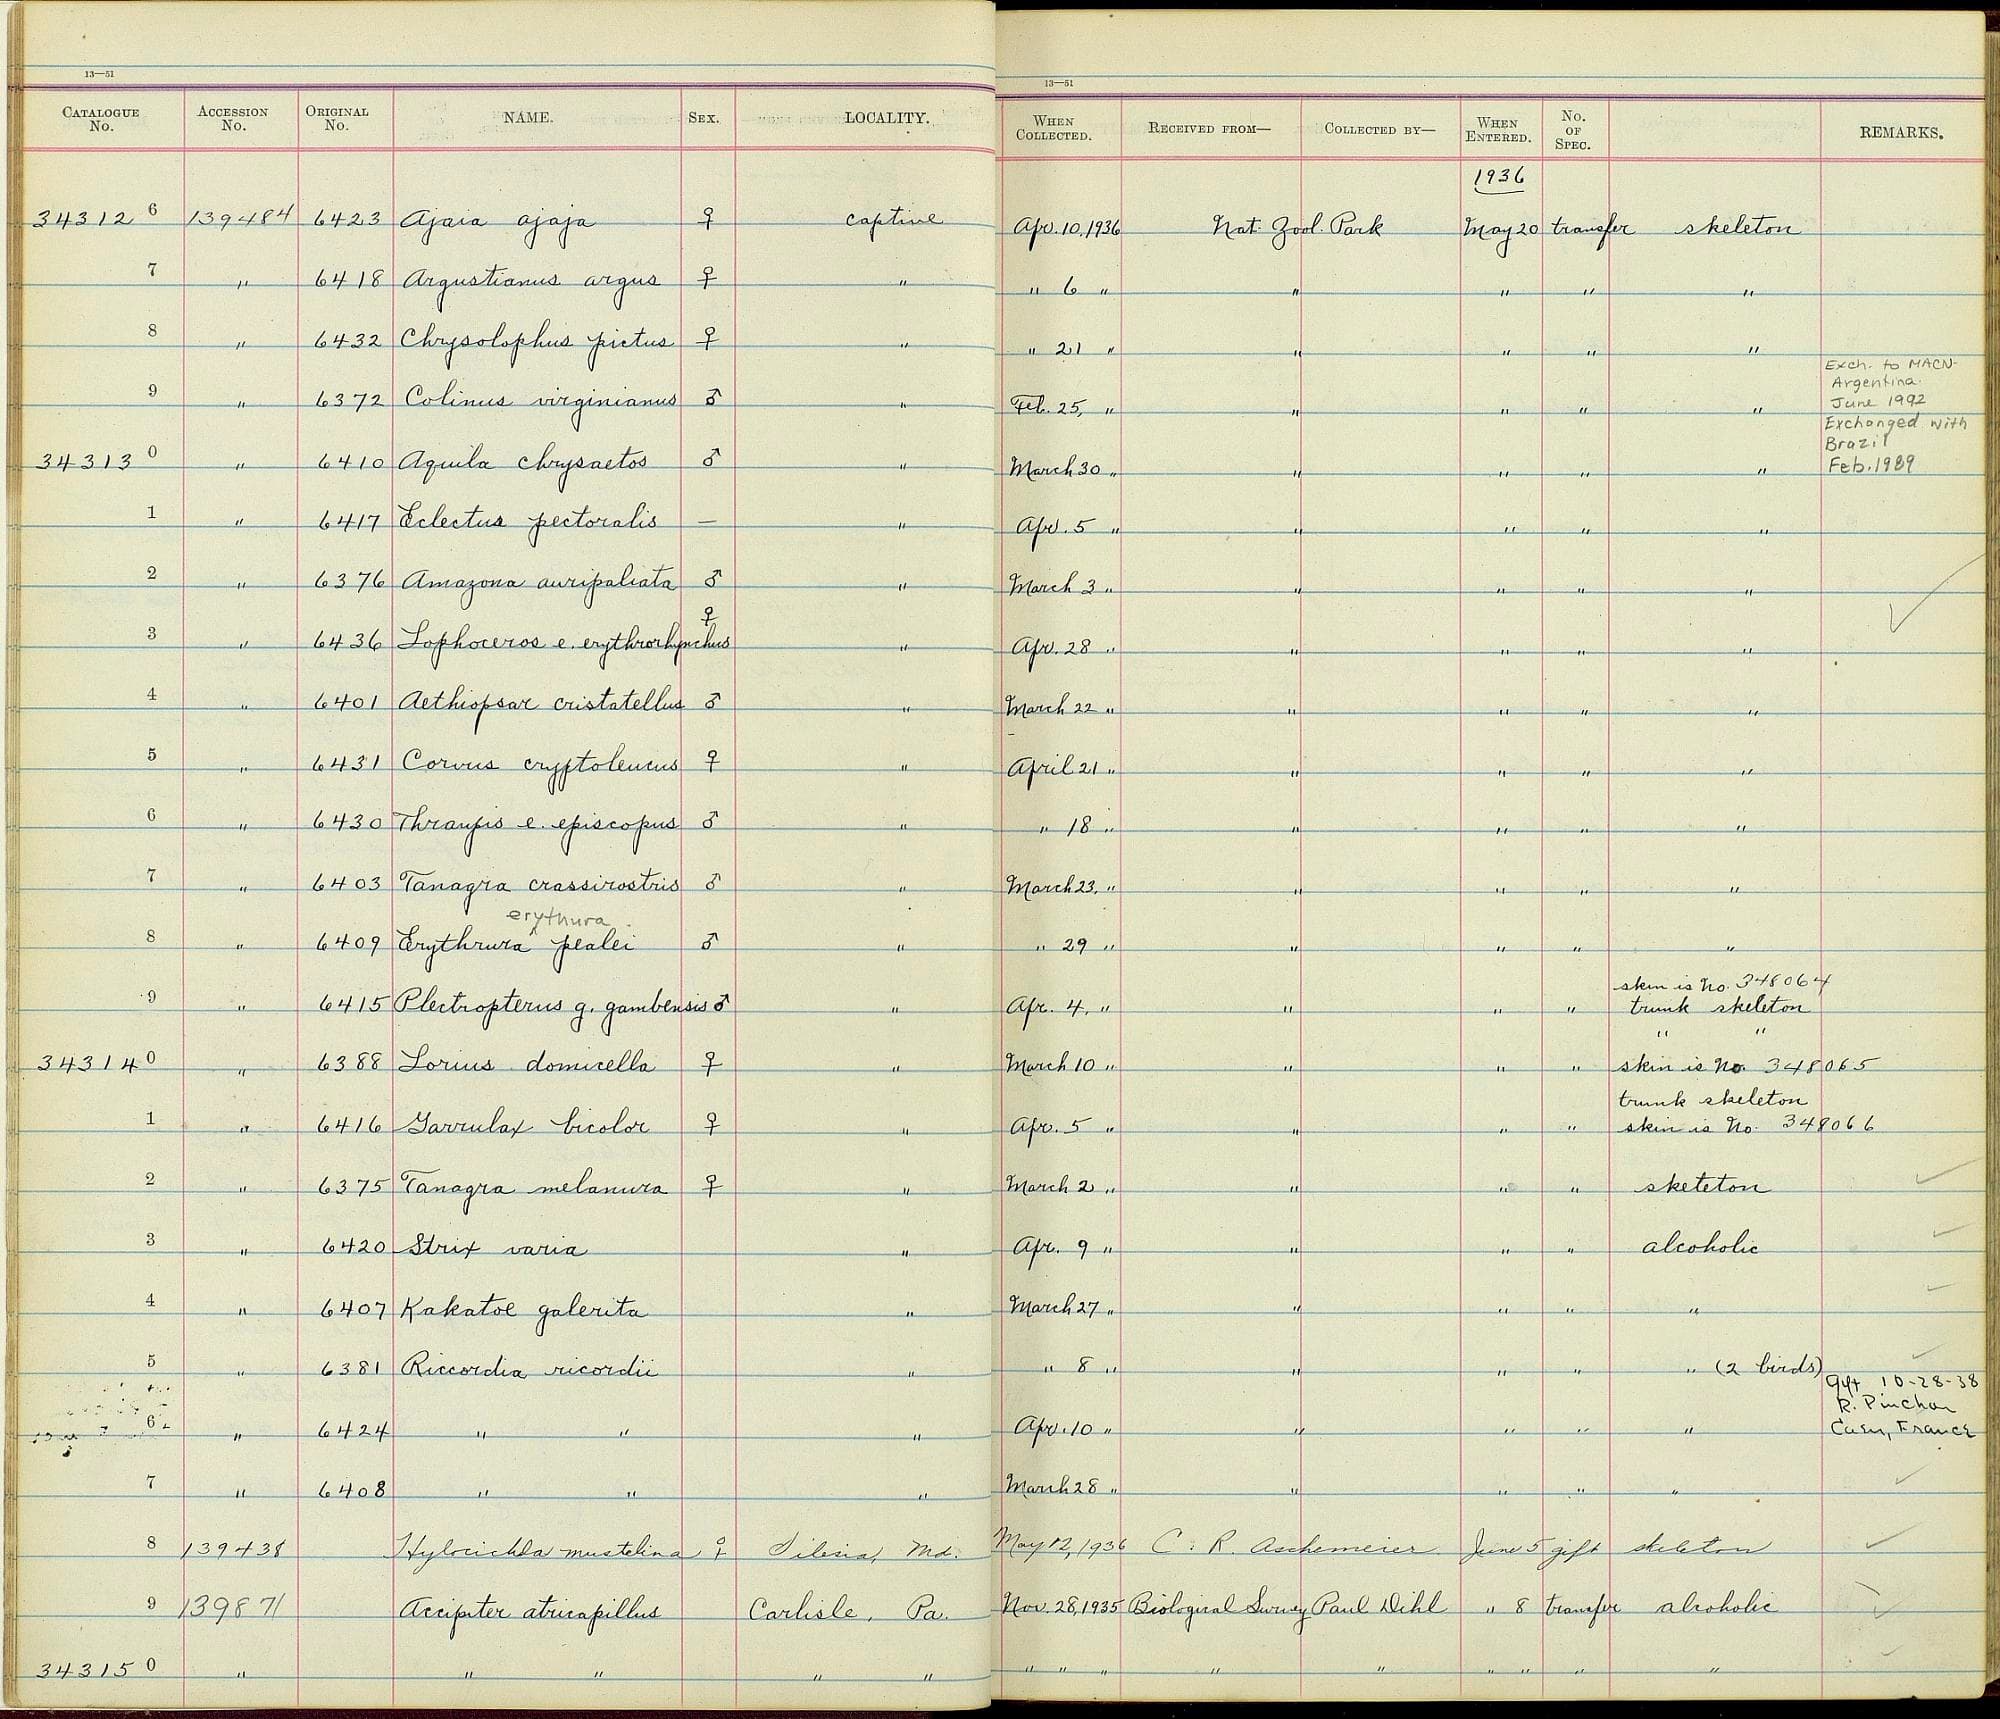 13—51
13—51
CATALOGUE No. ACCESSION No. ORIGINAL No. NAME. SEX. LOCALITY. WHEN COLLECTED. RECEIVED FROM— COLLECTED BY— WHEN ENTERED. No. OF SPEC. REMARKS.
1936
343126 139484 6423 Ajaia ajaja ♀ captive Apr. 10, 1936 Nat. Zool. Park May 20 transfer skeleton
7 " 6418 Argustianus argus ♀ " " 6 " " " " "
8 " 6432 Chrysolophus pictus ♀ " " 21 " " " " "
9 " 6372 Colinus virginianus ♂ " Feb. 25, " " " " " Exch. to MACN- Argentina. June 1992
343130 " 6410 Aquila chrysaetos ♂ " March 30 " " " " " Exchanged with Brazil Feb. 1989
1 " 6417 Eclectus pectoralis — " Apr. 5 " " " " "
2 " 6376 Amazona auripaliata ♂ " March 3 " " " " "
3 " 6436 Lophoceros e. erythrorhynchus ♀ " Apr. 28 " " " " " ✓
4 " 6401 Aethiopsar cristatellus ♂ " March 22 " " " " "
5 " 6431 Corvus cryptoleucus ♀ " April 21 " " " " "
6 " 6430 Thraupis e. episcopus ♂ " " 18 " " " " "
7 " 6403 Tanagra crassirostris ♂ " March 23, " " " " "
erythura
8 " 6409 Erythrura pealei ♂ " " 29 " " " " "
skin is No. 348064
9 " 6415 Plectropterus g. gambensis ♂ " Apr. 4, " " " " trunk skeleton
" "
343140 " 6388 Lorius domicella ♀ " March 10 " " " " skin is No. 348065
trunk skeleton
1 " 6416 Garrulax bicolor ♀ " Apr. 5 " " " " skin is No. 348066
2 " 6375 Tanagra melanura ♀ " March 2 " " " " sketeton ✓
3 " 6420 Strix varia " Apr. 9 " " " " alcoholic ✓
4 " 6407 Kakatoe galerita " March 27 " " " " " ✓
5 " 6381 Riccordia ricordii " " 8 " " " " " (2 birds) ✓
6 " 6424 " " " Apr. 10 " " " " " Gift 10-28-38 R. Pinchon Caen, France
7 " 6408 " " " March 28 " " " " " ✓
8 139438 Hylocichla mustelina ♀ Silesia, Md. May 12, 1936 C. R. Aschemeier June 5 gift skeleton ✓
9 139871 Accipiter atricapillus Carlisle, Pa. Nov. 28, 1935 Biological Survey Paul Dihl " 8 transfer alcoholic ✓
343150 " " " " " " " " " " " " " " ✓